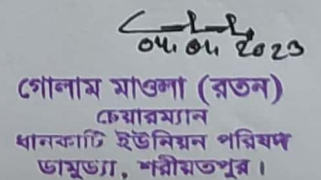 04.04.2023
গোলাম মাওলা (রতন)
চেয়ারম্যান
ধানকাটি ইউনিয়ন পরিষদ
ডামুড্যা, শরীয়তপুর।